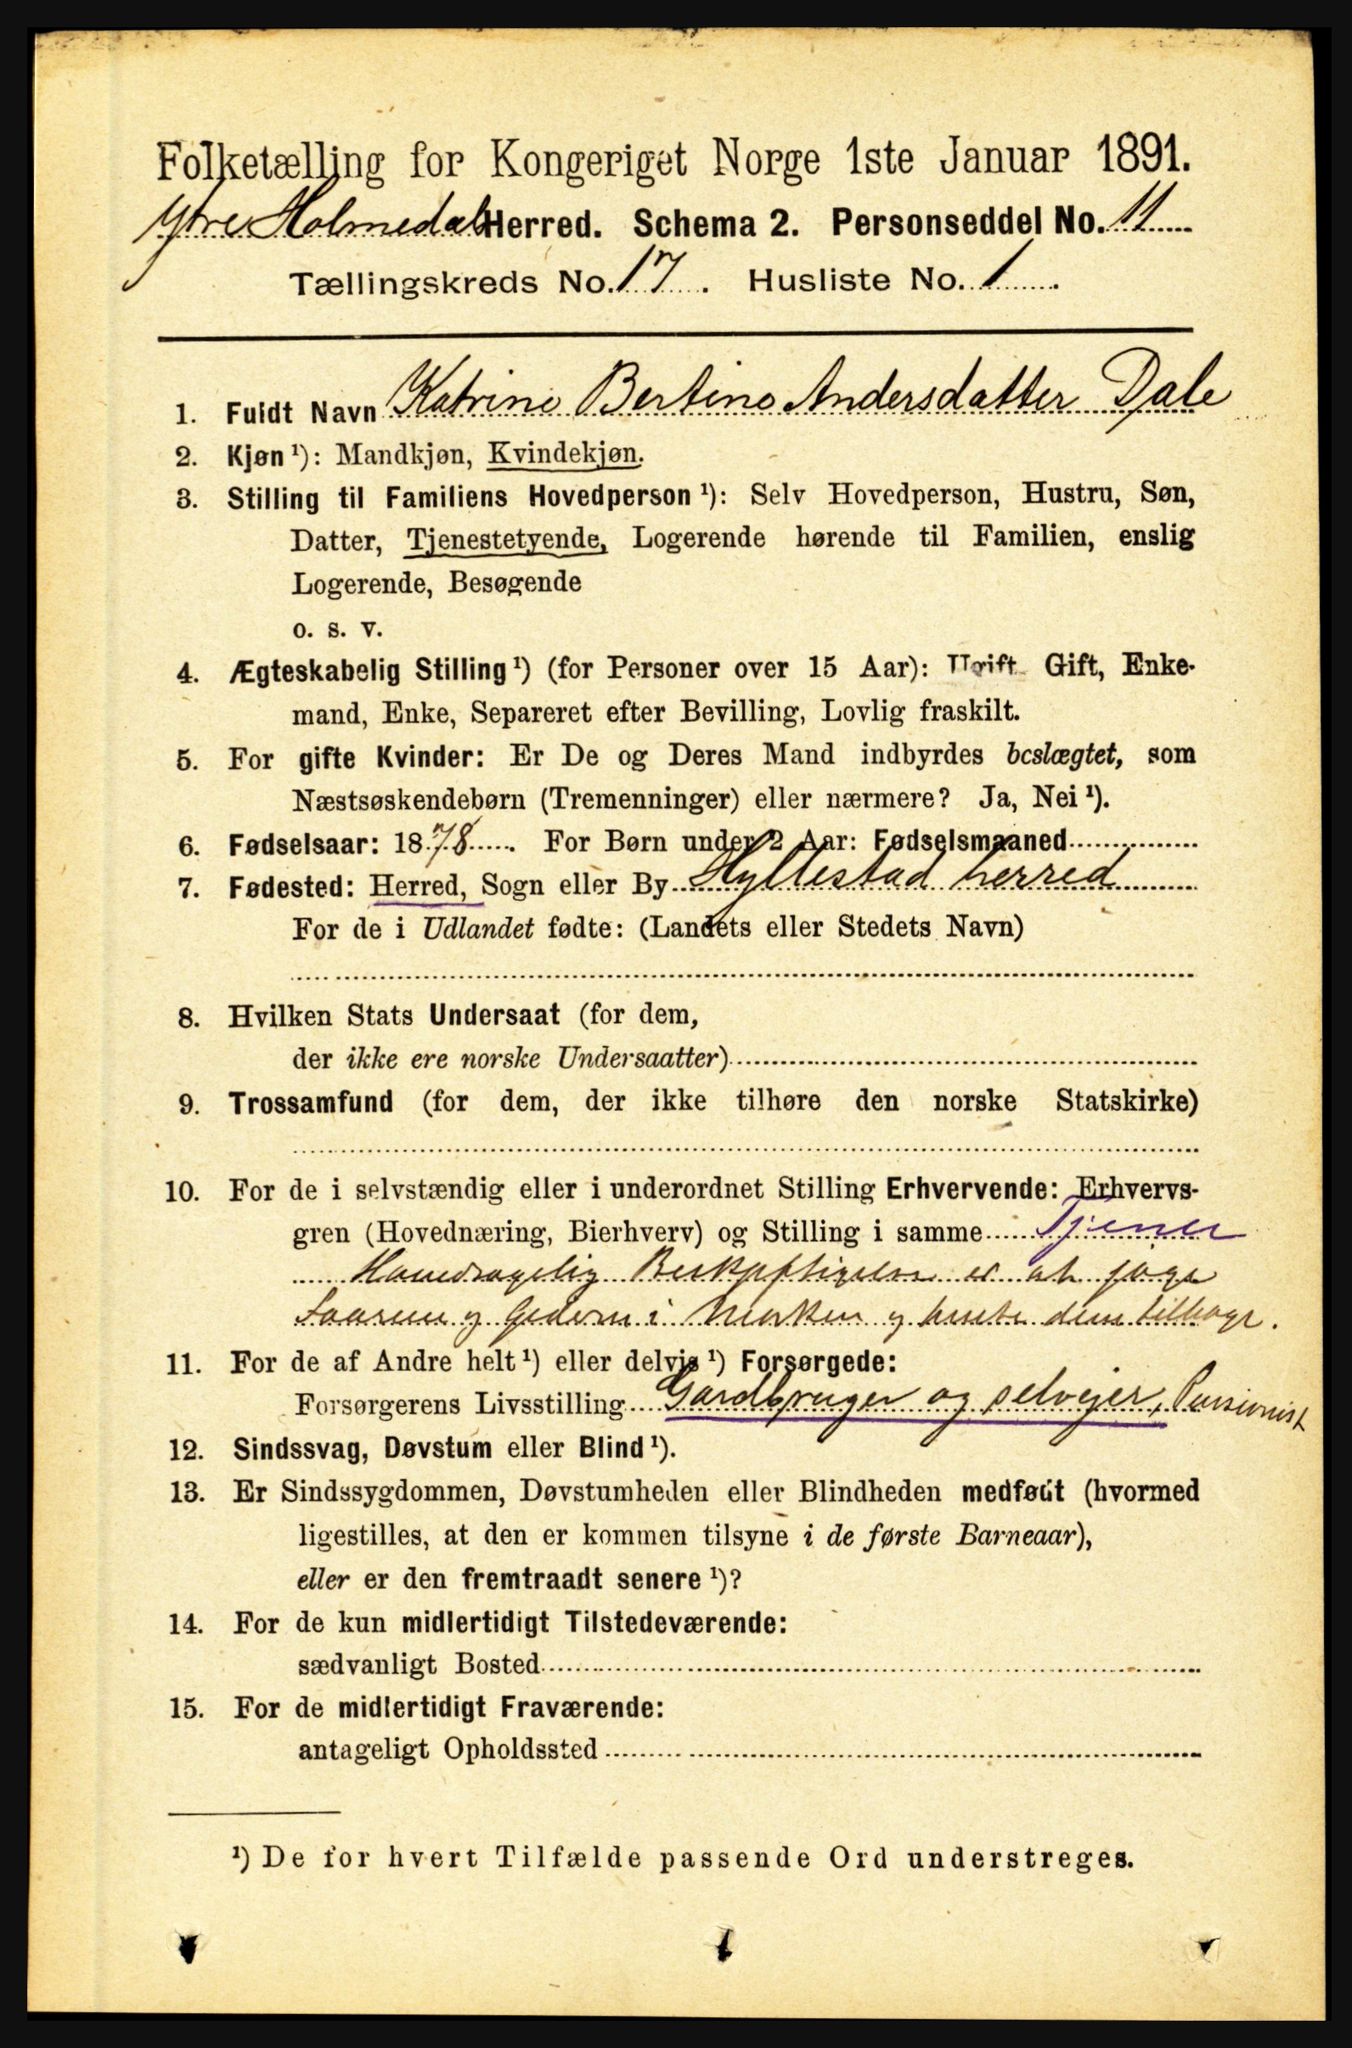 Folketælling for Kongeriget Norge 1ste Januar 1891.
Ytre Holmedal Herred. Schema 2. Personseddel No. 11
Tællingskreds No. 17. Husliste No. 1.
1. Fuldt Navn Katrine Bertine Andersdatter Dale
2. Kjøn ¹): Mandkjøn, Kvindekjøn.
3. Stilling til Familiens Hovedperson ¹): Selv Hovedperson, Hustru, Søn,
Datter, Tjenestetyende, Logerende hørende til Familien, enslig
Logerende, Besøgende
o. s. v.
4. Ægteskabelig Stilling ¹) (for Personer over 15 Aar): Ugift Gift, Enke-
mand, Enke, Separeret efter Bevilling, Lovlig fraskilt.
5. For gifte Kvinder: Er De og Deres Mand indbyrdes beslægtet, som
Næstsøskendebørn (Tremenninger) eller nærmere? Ja, Nei ¹).
6. Fødselsaar: 1878. For Børn under 2 Aar: Fødselsmaaned
7. Fødested: Herred, Sogn eller By Hyllestad herred
For de i Udlandet fødte: (Landets eller Stedets Navn)
8. Hvilken Stats Undersaat (for dem,
der ikke ere norske Undersaatter)
9. Trossamfund (for dem, der ikke tilhøre den norske Statskirke)
10. For de i selvstændig eller i underordnet Stilling Erhvervende: Erhvervs-
gren (Hovednæring, Bierhverv) og Stilling i samme Tjener
Hovedsagelig Beskjæftigelse er at jage
Faarene og Gederne i Marken og hente dem tilbage.
11. For de af Andre helt ¹) eller delvis ¹) Forsørgede:
Forsørgerens Livsstilling Gardbruger og selvejer, Pensionist
12. Sindssvag, Døvstum eller Blind ¹).
13. Er Sindssygdommen, Døvstumheden eller Blindheden medfødt (hvormed
ligestilles, at den er kommen tilsyne i de første Barneaar),
eller er den fremtraadt senere ¹)?
14. For de kun midlertidigt Tilstedeværende:
sædvanligt Bosted
15. For de midlertidigt Fraværende:
antageligt Opholdssted
¹) De for hvert Tilfælde passende Ord understreges.